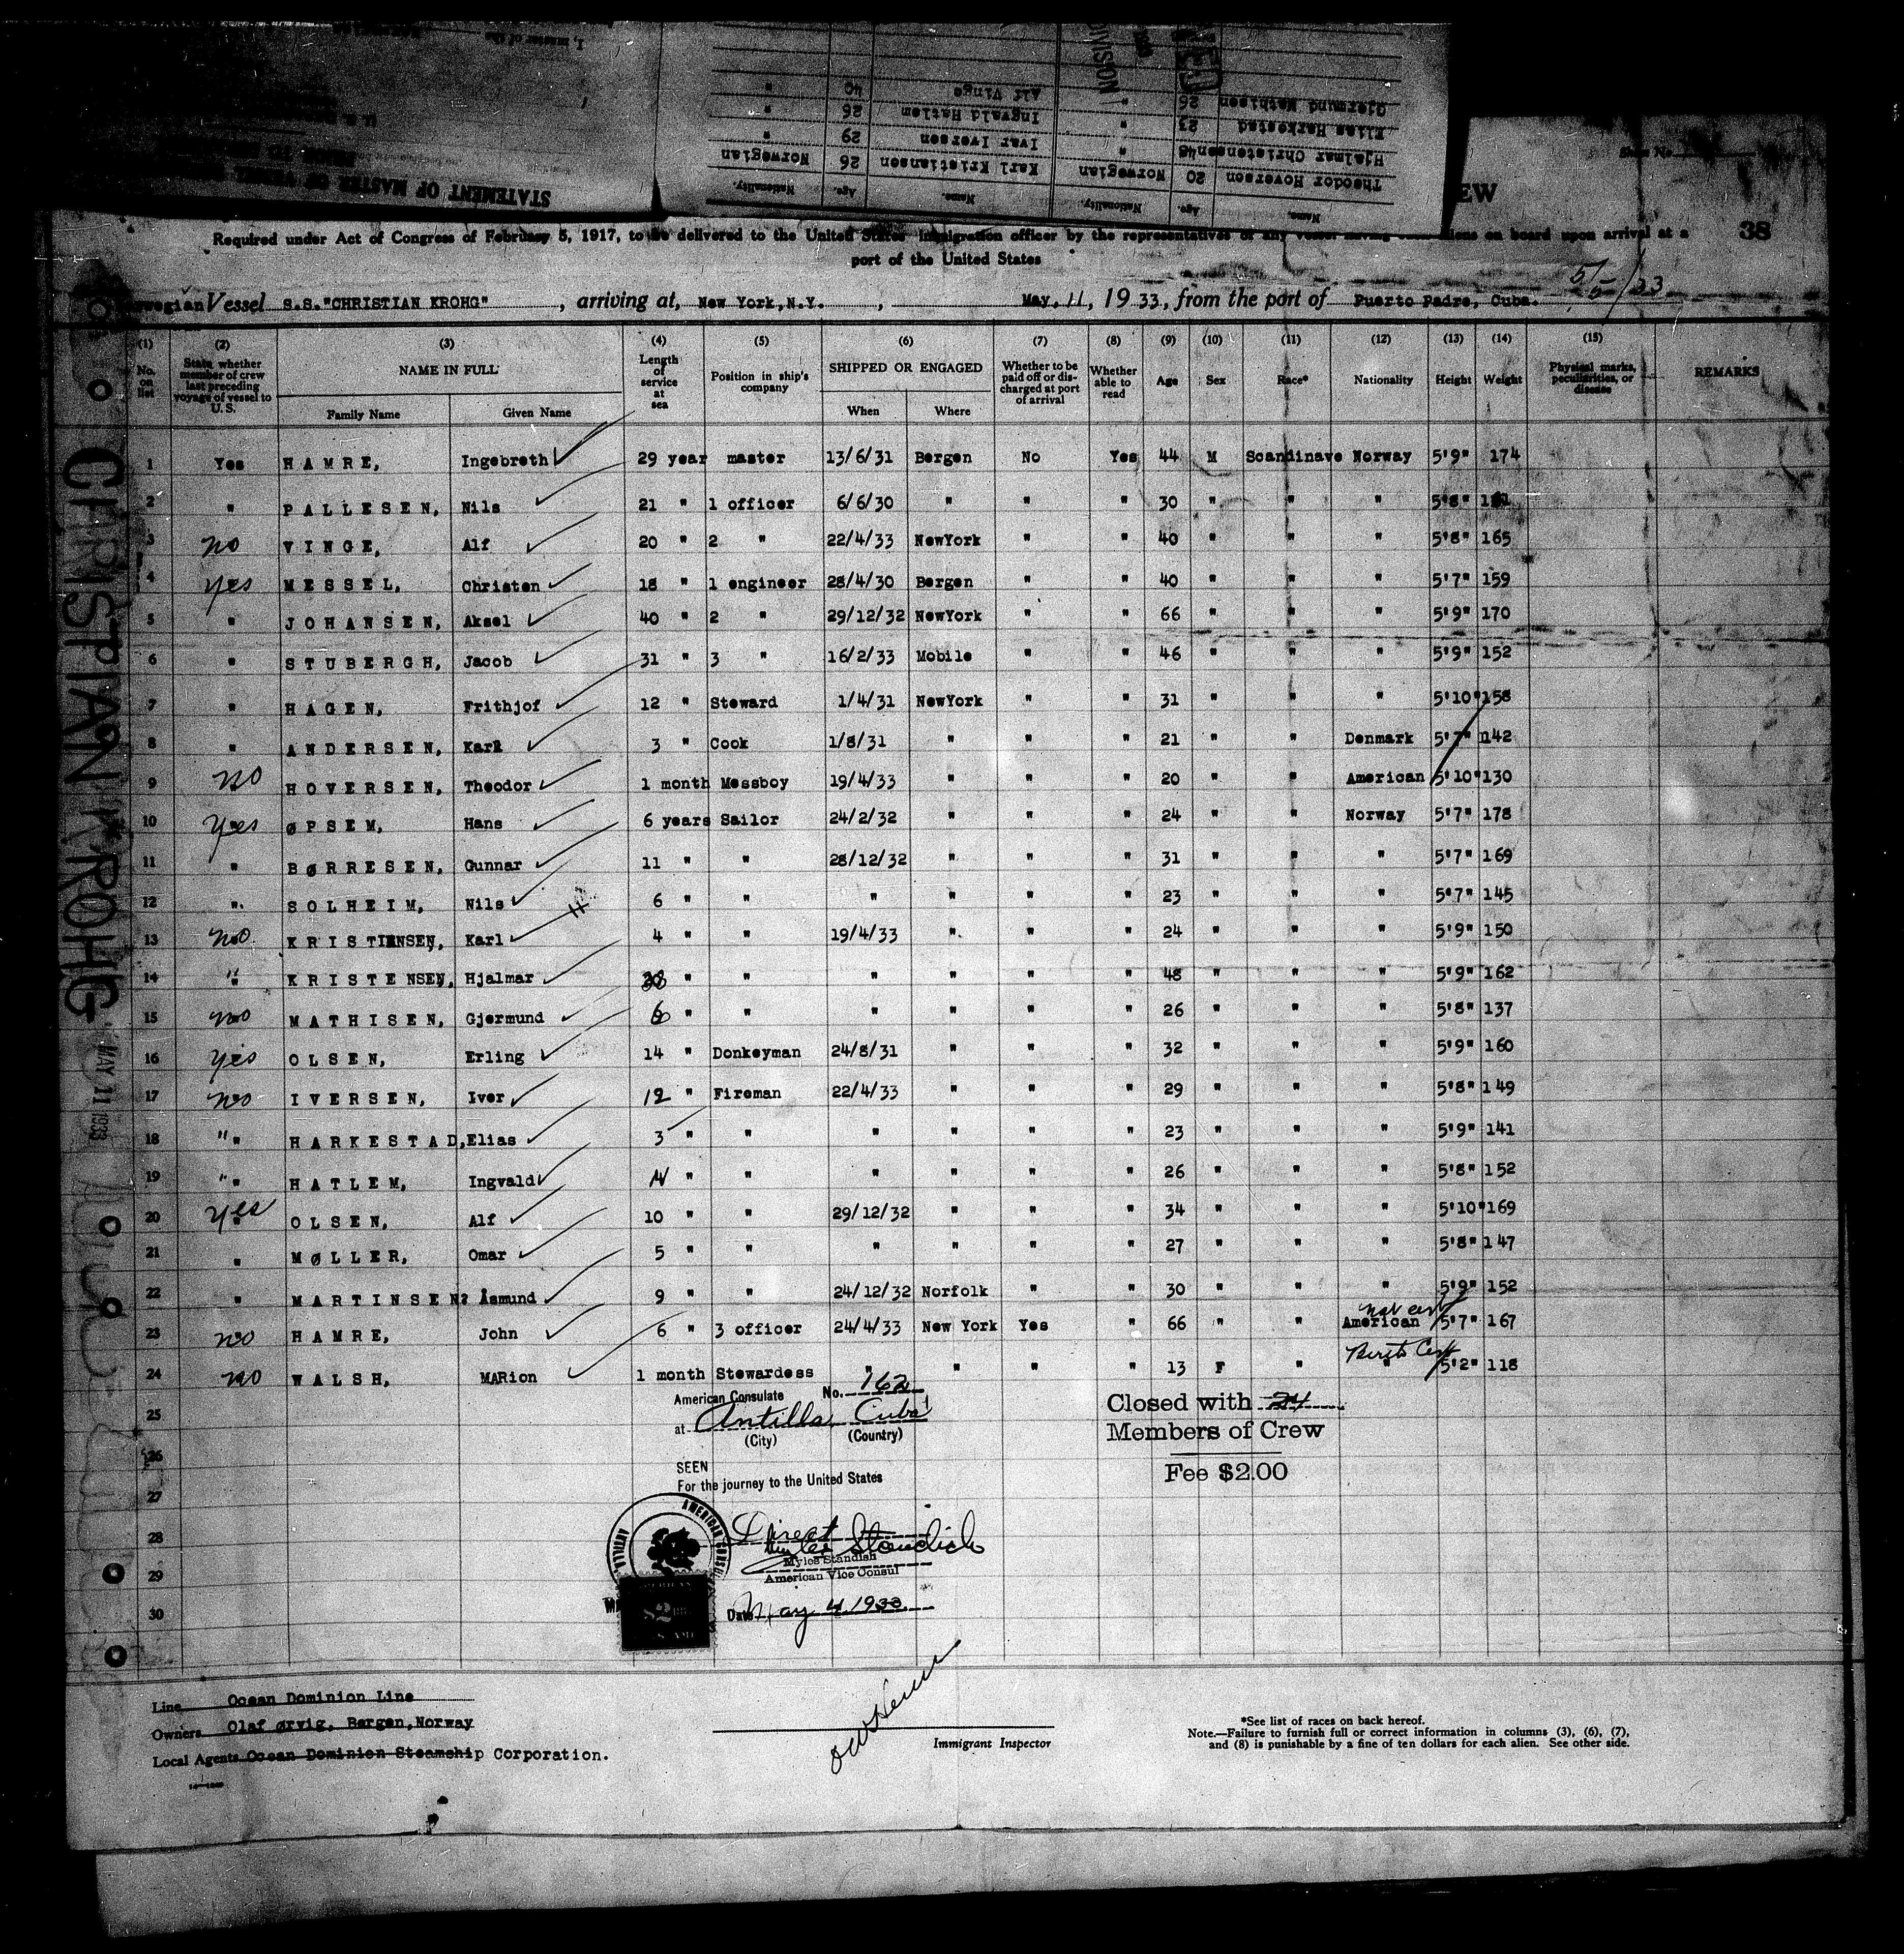 I, master of the
STATEMENT OF MASTER OF VESSEL
Name. Age. Nationality. Name. Age. Nationality.
Theodor Hoversen 20 Norwegian Karl Kristiansen 26 Norwegian
Hjalmar Christensen 48 " Ivar Iversen 29 "
Elias Harkestad 23 " Ingvald Hatlem 26 "
Gjermund Mathisen 26 " Alf Vinge 40 "
DIVISION
EW
38
Required under Act of Congress of February 5, 1917, to be delivered to the United States immigration officer by the representatives of any vessel having on board upon arrival at a
port of the United States
5/5/33
wegian Vessel S.S."CHRISTIAN KROHG", arriving at, New York,N.Y., May. 11, 19 33., from the port of Puerto Padre, Cuba.
(1) (2) (3) (4) (5) (6) (7) (8) (9) (10) (11) (12) (13) (14) (15)
No. on list State whether member of crew last preceding voyage of vessel to U.S. NAME IN FULL Length of service at sea Position in ship's company SHIPPED OR ENGAGED Whether to be paid off or discharged at port of arrival Whether able to read Age Sex Race* Nationality Height Weight Physical marks, peculiarities, or disease REMARKS
Family Name Given Name When Where
1 Yes HAMRE, Ingebreth 29 year master 13/6/31 Bergen No Yes 44 M Scandinave Norway 5'9" 174
2 " PALLESEN, Nils 21 " 1 officer 6/6/30 " " " 30 " " " 5'8"
3 no VINGE, Alf 20 " 2 " 22/4/33 NewYork " " 40 " " " 5'8" 165
4 yes MESSEL, Christen 18 " 1 engineer 28/4/30 Bergen " " 40 " " " 5'7" 159
5 " JOHANSEN, Aksel 40 " 2 " 29/12/32 NewYork " " 66 " " " 5'9" 170
6 " STUBERGH, Jacob 31 " 3 " 16/2/33 Mobile " " 46 " " " 5'9" 152
7 " HAGEN, Frithjof 12 " Steward 1/4/31 NewYork " " 31 " " " 5'10" 158
8 " ANDERSEN, Karl 3 " Cook 1/8/31 " " " 21 " " Denmark 5'7" 142
9 No HOVERSEN, Theodor 1 month Messboy 19/4/33 " " " 20 " " American 5'10" 130
10 Yes ØPSEM, Hans 6 years Sailor 24/2/32 " " " 24 " " Norway 5'7" 178
11 " BØRRESEN, Gunnar 11 " " 28/12/32 " " " 31 " " " 5'7" 169
12 " SOLHEIM, Nils 6 " " " " " " 23 " " " 5'7" 145
13 no KRISTIENSEN, Karl 4 " " 19/4/33 " " " 24 " " " 5'9" 150
14 " KRISTENSEN, Hjalmar " " " " " " 48 " " " 5'9" 162
15 no MATHISEN, Gjermund 6 " " " " " " 26 " " " 5'8" 137
16 yes OLSEN, Erling 14 " Donkeyman 24/8/31 " " " 32 " " " 5'9" 160
17 no IVERSEN, Iver 12 " Fireman 22/4/33 " " " 29 " " " 5'8" 149
18 " HARKESTAD, Elias 3 " " " " " " 23 " " " 5'9" 141
19 " HATLEM, Ingvald " " " " " " 26 " " " 5'8" 152
20 yes OLSEN, Alf 10 " " 29/12/32 " " " 34 " " " 5'10" 169
21 " MØLLER, Omar 5 " " " " " " 27 " " " 5'8" 147
22 " MARTINSEN? Åsmund 9 " " 24/12/32 Norfolk " " 30 " " " 5'9" 152
Nat cert
23 no HAMRE, John 6 " 3 officer 24/4/33 New York Yes " 66 " " American 5'7" 167
Birth Cert
24 no WALSH, MARion 1 month Stewardess " " " " 13 F " " 5'2" 118
25
26
27
28
29
30
American Consulate No. 162
at Antilla Cuba
(City) (Country)
SEEN
For the journey to the United States
Direct
Myles Standish
Myles Standish
American Vice Consul
Date May 4 1933
AMERICAN CONSUL
ANTILLA
$2
Closed with 24
Members of Crew
Fee $2.00
CHRISTIAN KROHG
MAY 11 1933
Line Ocean Dominion Line
Owners Olaf Ørvig, Bergen,Norway
Local Agents Ocean Dominion Steamship Corporation.
Immigrant Inspector
*See list of races on back hereof.
Note.—Failure to furnish full or correct information in columns (3), (6), (7),
and (8) is punishable by a fine of ten dollars for each alien. See other side.